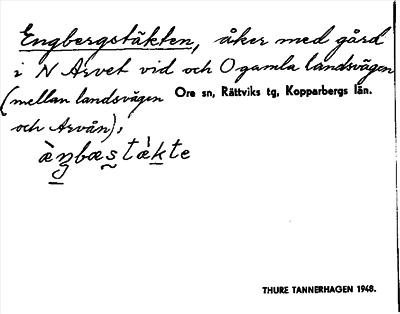 Engbergstäkten, åker med gård
i N Arvet vid och O gamla landsvägen
(mellan landsvägen Ore sn, Rättviks tg, Kopparbergs län.
och Arvån),
æ̀ŋbæstæ̀kte
THURE TANNERHAGEN 1948.